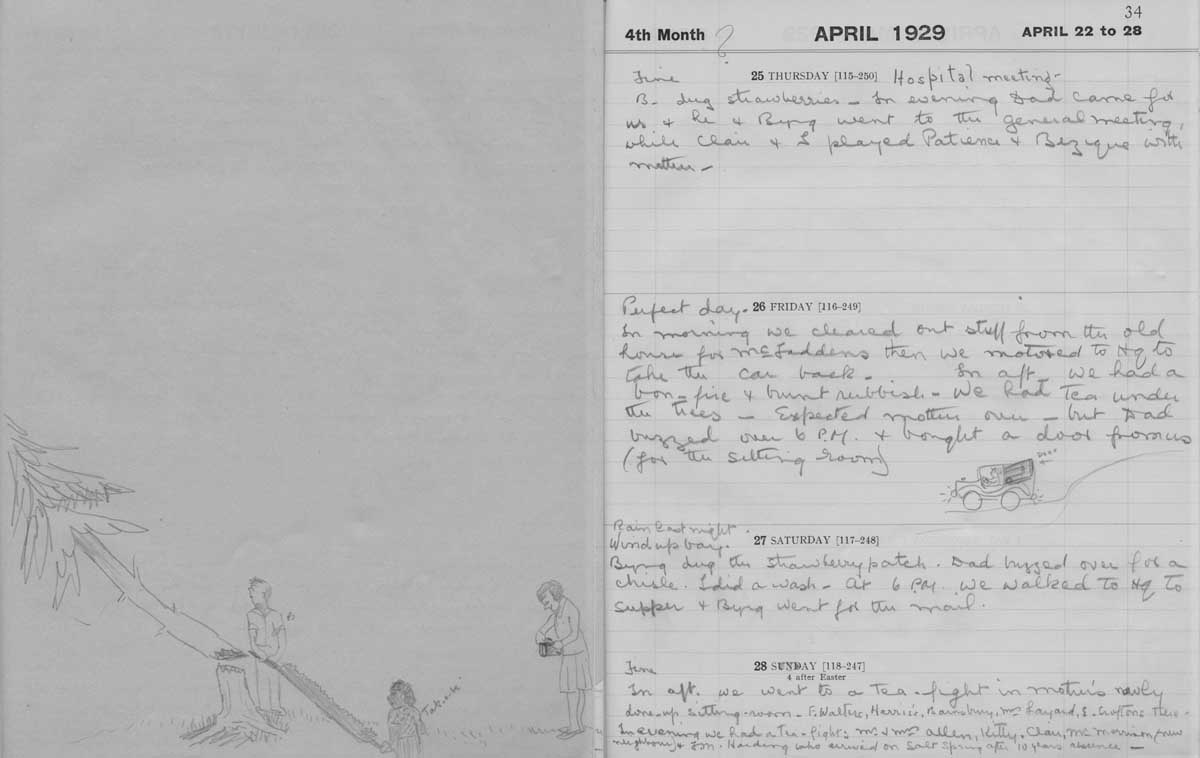 34
4th Month ? APRIL 1929 APRIL 22 to 28
Fine 25 THURSDAY [115-250] Hospital meeting-
B- dug strawberries - In evening Dad came for
us & he & Byng went to the general meeting,
while Clair & I played Patience & Bezique with
mother -
Perfect day. 26 FRIDAY [116-249]
In morning we cleared out stuff from the old
house for McFaddens then we motored to Hq to
take the car back - In aft. we had a
bon-fire & burnt rubbish - We had Tea under
the trees - Expected mother over - but Dad
buzzed over 6 P.M. & bought a door from us
(for the sitting room)
DOOR
Rain last night.
Wind up bay. 27 SATURDAY [117-248]
Byng dug the strawberry patch. Dad buzzed over for a
I did a wash - At 6 P.M. we walked to Hq to
supper & Byng went for the mail.
Fine 28 SUNDAY [118-247]
4 after Easter
In aft. we went to a tea-fight in mother's newly
done-up sitting-room - F. Walters, Mrs Layard, Croftons there -
In evening we had a tea-fight: Mr & Mrs Allen, Kitty, Clair, Mc Morrison (new
neighbour) & Harding who arrived on Salt Spring after 10 years absence -
B